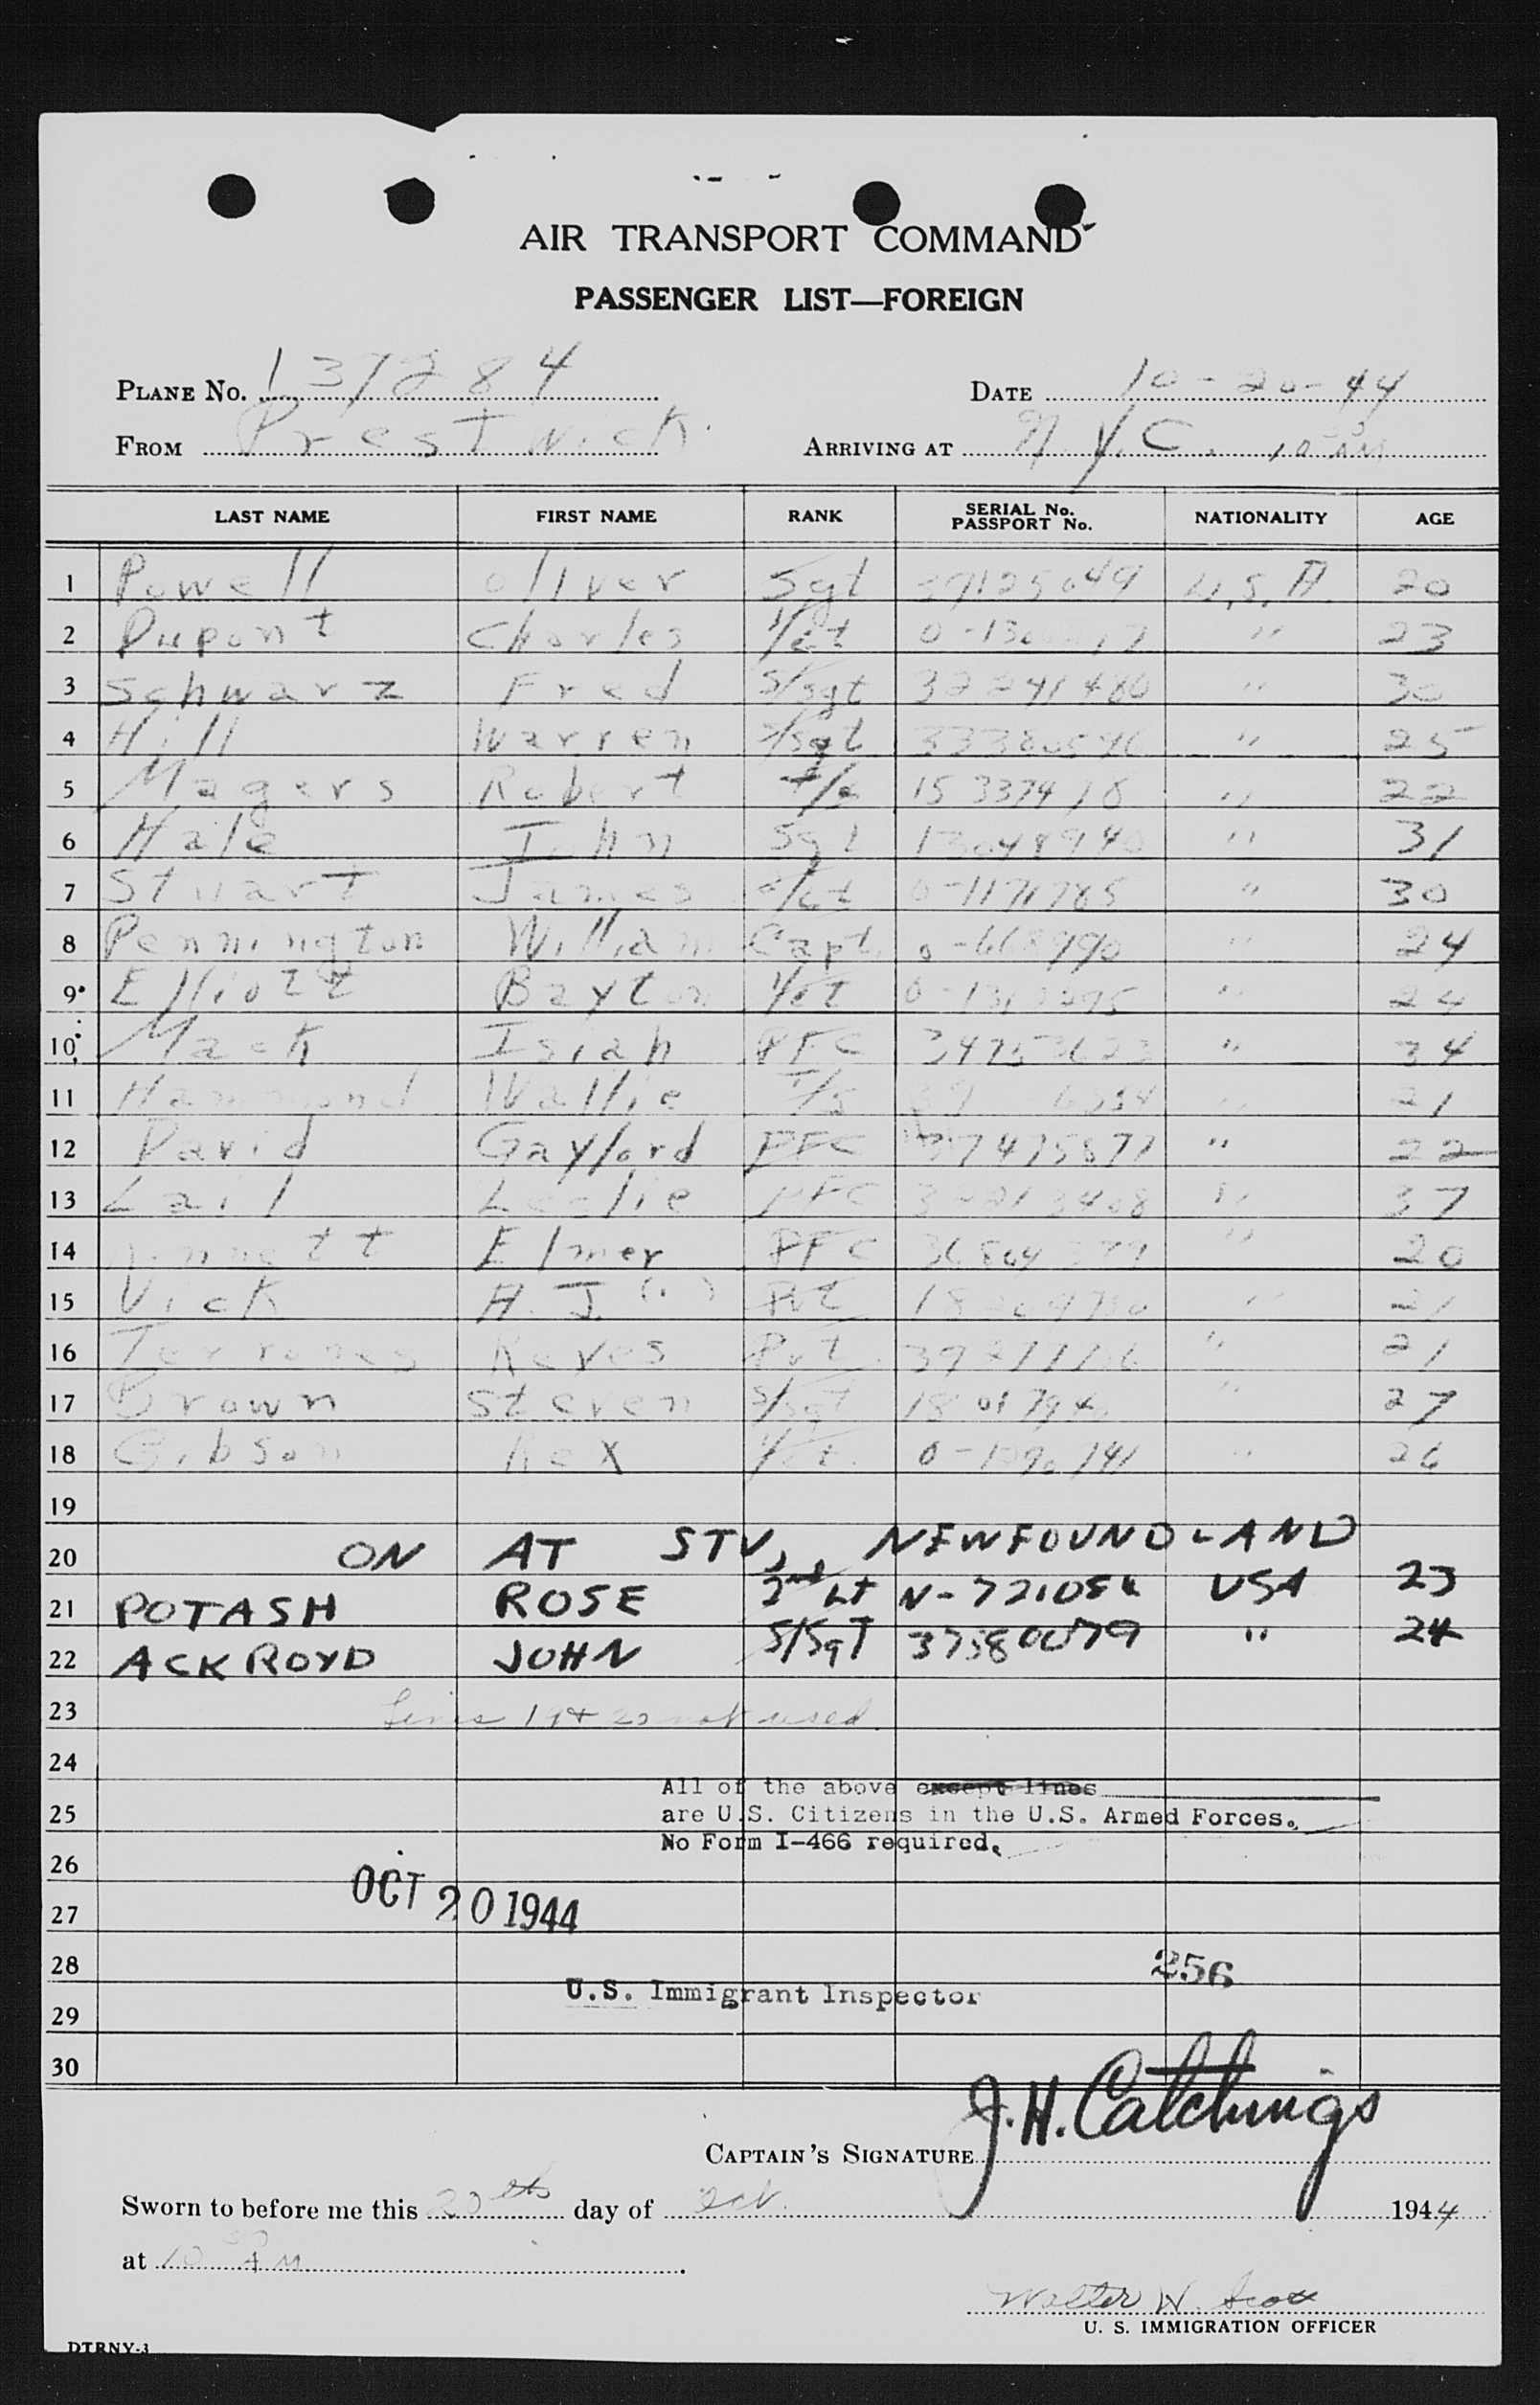 AIR TRANSPORT COMMAND
PASSENGER LIST—FOREIGN
PLANE No. 137284 DATE 10-20-44
FROM Prestwick. ARRIVING AT N.Y.C. 10
LAST NAME FIRST NAME RANK SERIAL No. PASSPORT No. NATIONALITY AGE
1 Powell Oliver Sgt 39125049 U.S.A. 20
2 Dupont Charles 1/Lt " 23
3 Schwarz Fred S/Sgt 32241480 " 30
4 Hill Warren S/Sgt " 25
5 Magers Robert 15337418 " 22
6 Hale John Sgt 13048940 " 31
7 Stuart James 0-1171785 " 30
8 Pennington William Capt. 0-668990 " 24
9 Elliott Bayton 1/Lt " 24
10 Mack Isiah PFC 34753623 " 34
11 Hammond Wallie T/5 " 21
12 David Gayford PFC 37475877 " 22
13 Lail Leslie PFC " 37
14 Elmer PFC " 20
15 Vick H. J. Pvt " 21
16 Terrones Reyes Pvt. " 21
17 Brown Steven S/Sgt " 27
18 Gibson Rex 1/Lt. " 26
19
20 ON AT STV, NEWFOUNDLAND
21 POTASH ROSE 2nd Lt USA 23
22 ACKROYD JOHN S/SgT 37580079 " 24
23 Lines 19 & 20 not used
24 All of the above except lines
25 are U.S. Citizens in the U.S. Armed Forces.
No Form I-466 required.
26
27 OCT 20 1944
28 256
U.S. Immigrant Inspector
29
30
CAPTAIN'S SIGNATURE J. H. Catchings
Sworn to before me this 20th day of Oct. 1944
at 10 PM
Walter W. Scott
U. S. IMMIGRATION OFFICER
DTRNY-3